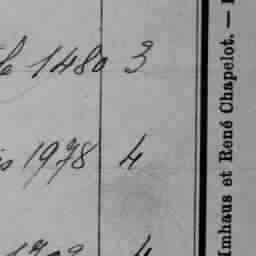 1480 3
1978 4
4
Imhaus et René Chapelot. —